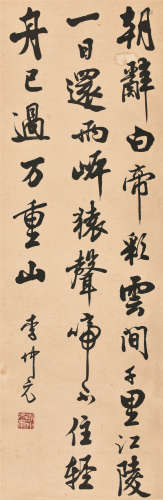 朝辭白帝彩雲間千里江陵
一日還兩岸猿聲啼不住輕
舟已過万重山
李仲